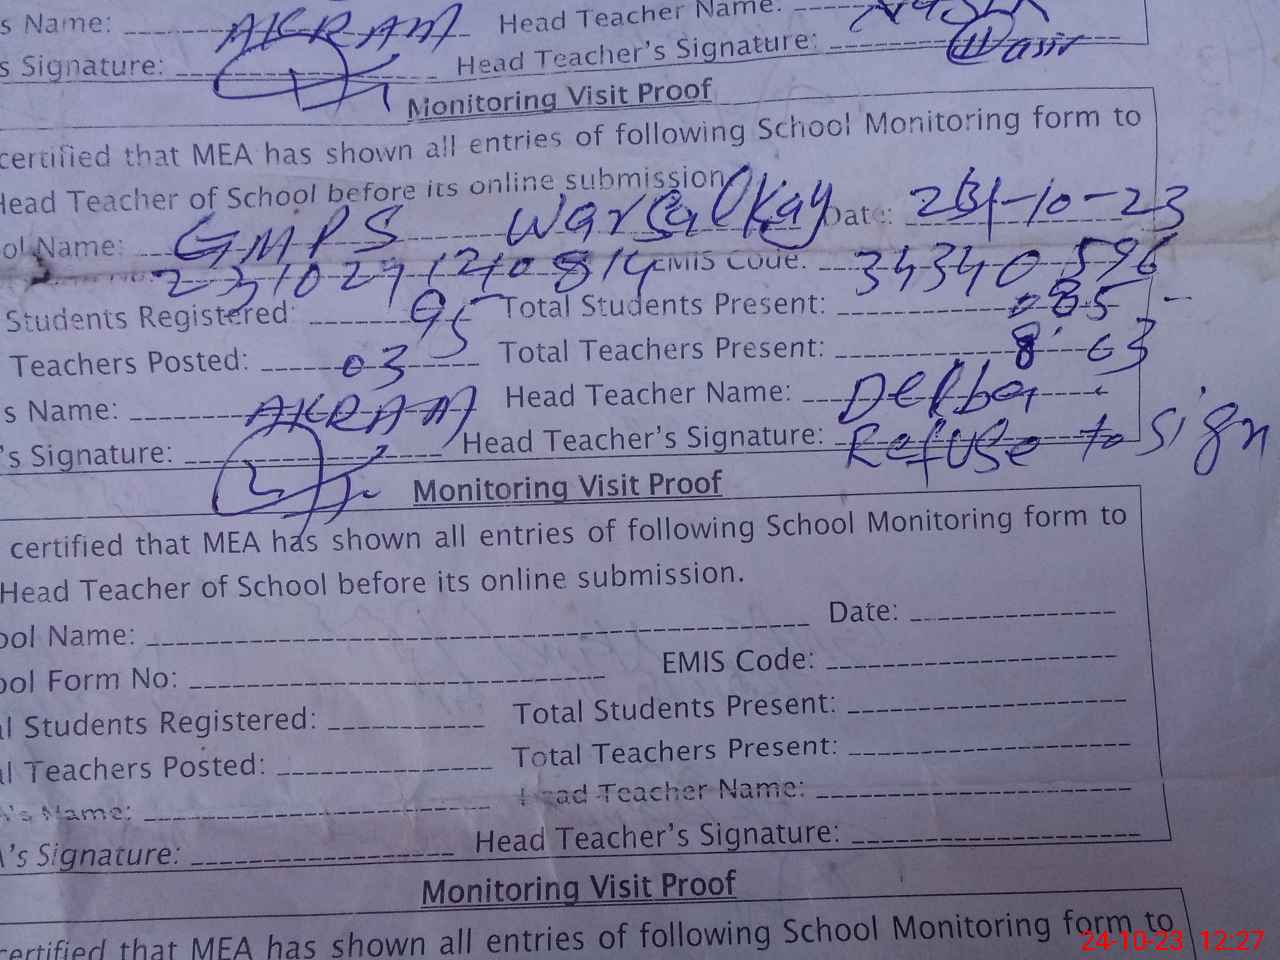 s Name: AKRAM Head Teacher Name:
s Signature: Head Teacher's Signature:
Monitoring Visit Proof
certified that MEA has shown all entries of following School Monitoring form to
Head Teacher of School before its online submission
ol Name: GMPS Date: -10-23
EMIS Code: 34340596
Students Registered: 95 Total Students Present: 085
Teachers Posted: 03 Total Teachers Present: 03
s Name: AKRAM Head Teacher Name:
's Signature: Head Teacher's Signature: Refuse to sign
Monitoring Visit Proof
certified that MEA has shown all entries of following School Monitoring form to
Head Teacher of School before its online submission.
ool Name: Date:
ool Form No: EMIS Code:
al Students Registered: Total Students Present:
al Teachers Posted: Total Teachers Present:
's Name: Head Teacher Name:
A's Signature: Head Teacher's Signature:
Monitoring Visit Proof
certified that MEA has shown all entries of following School Monitoring form to
24-10-23 12:27